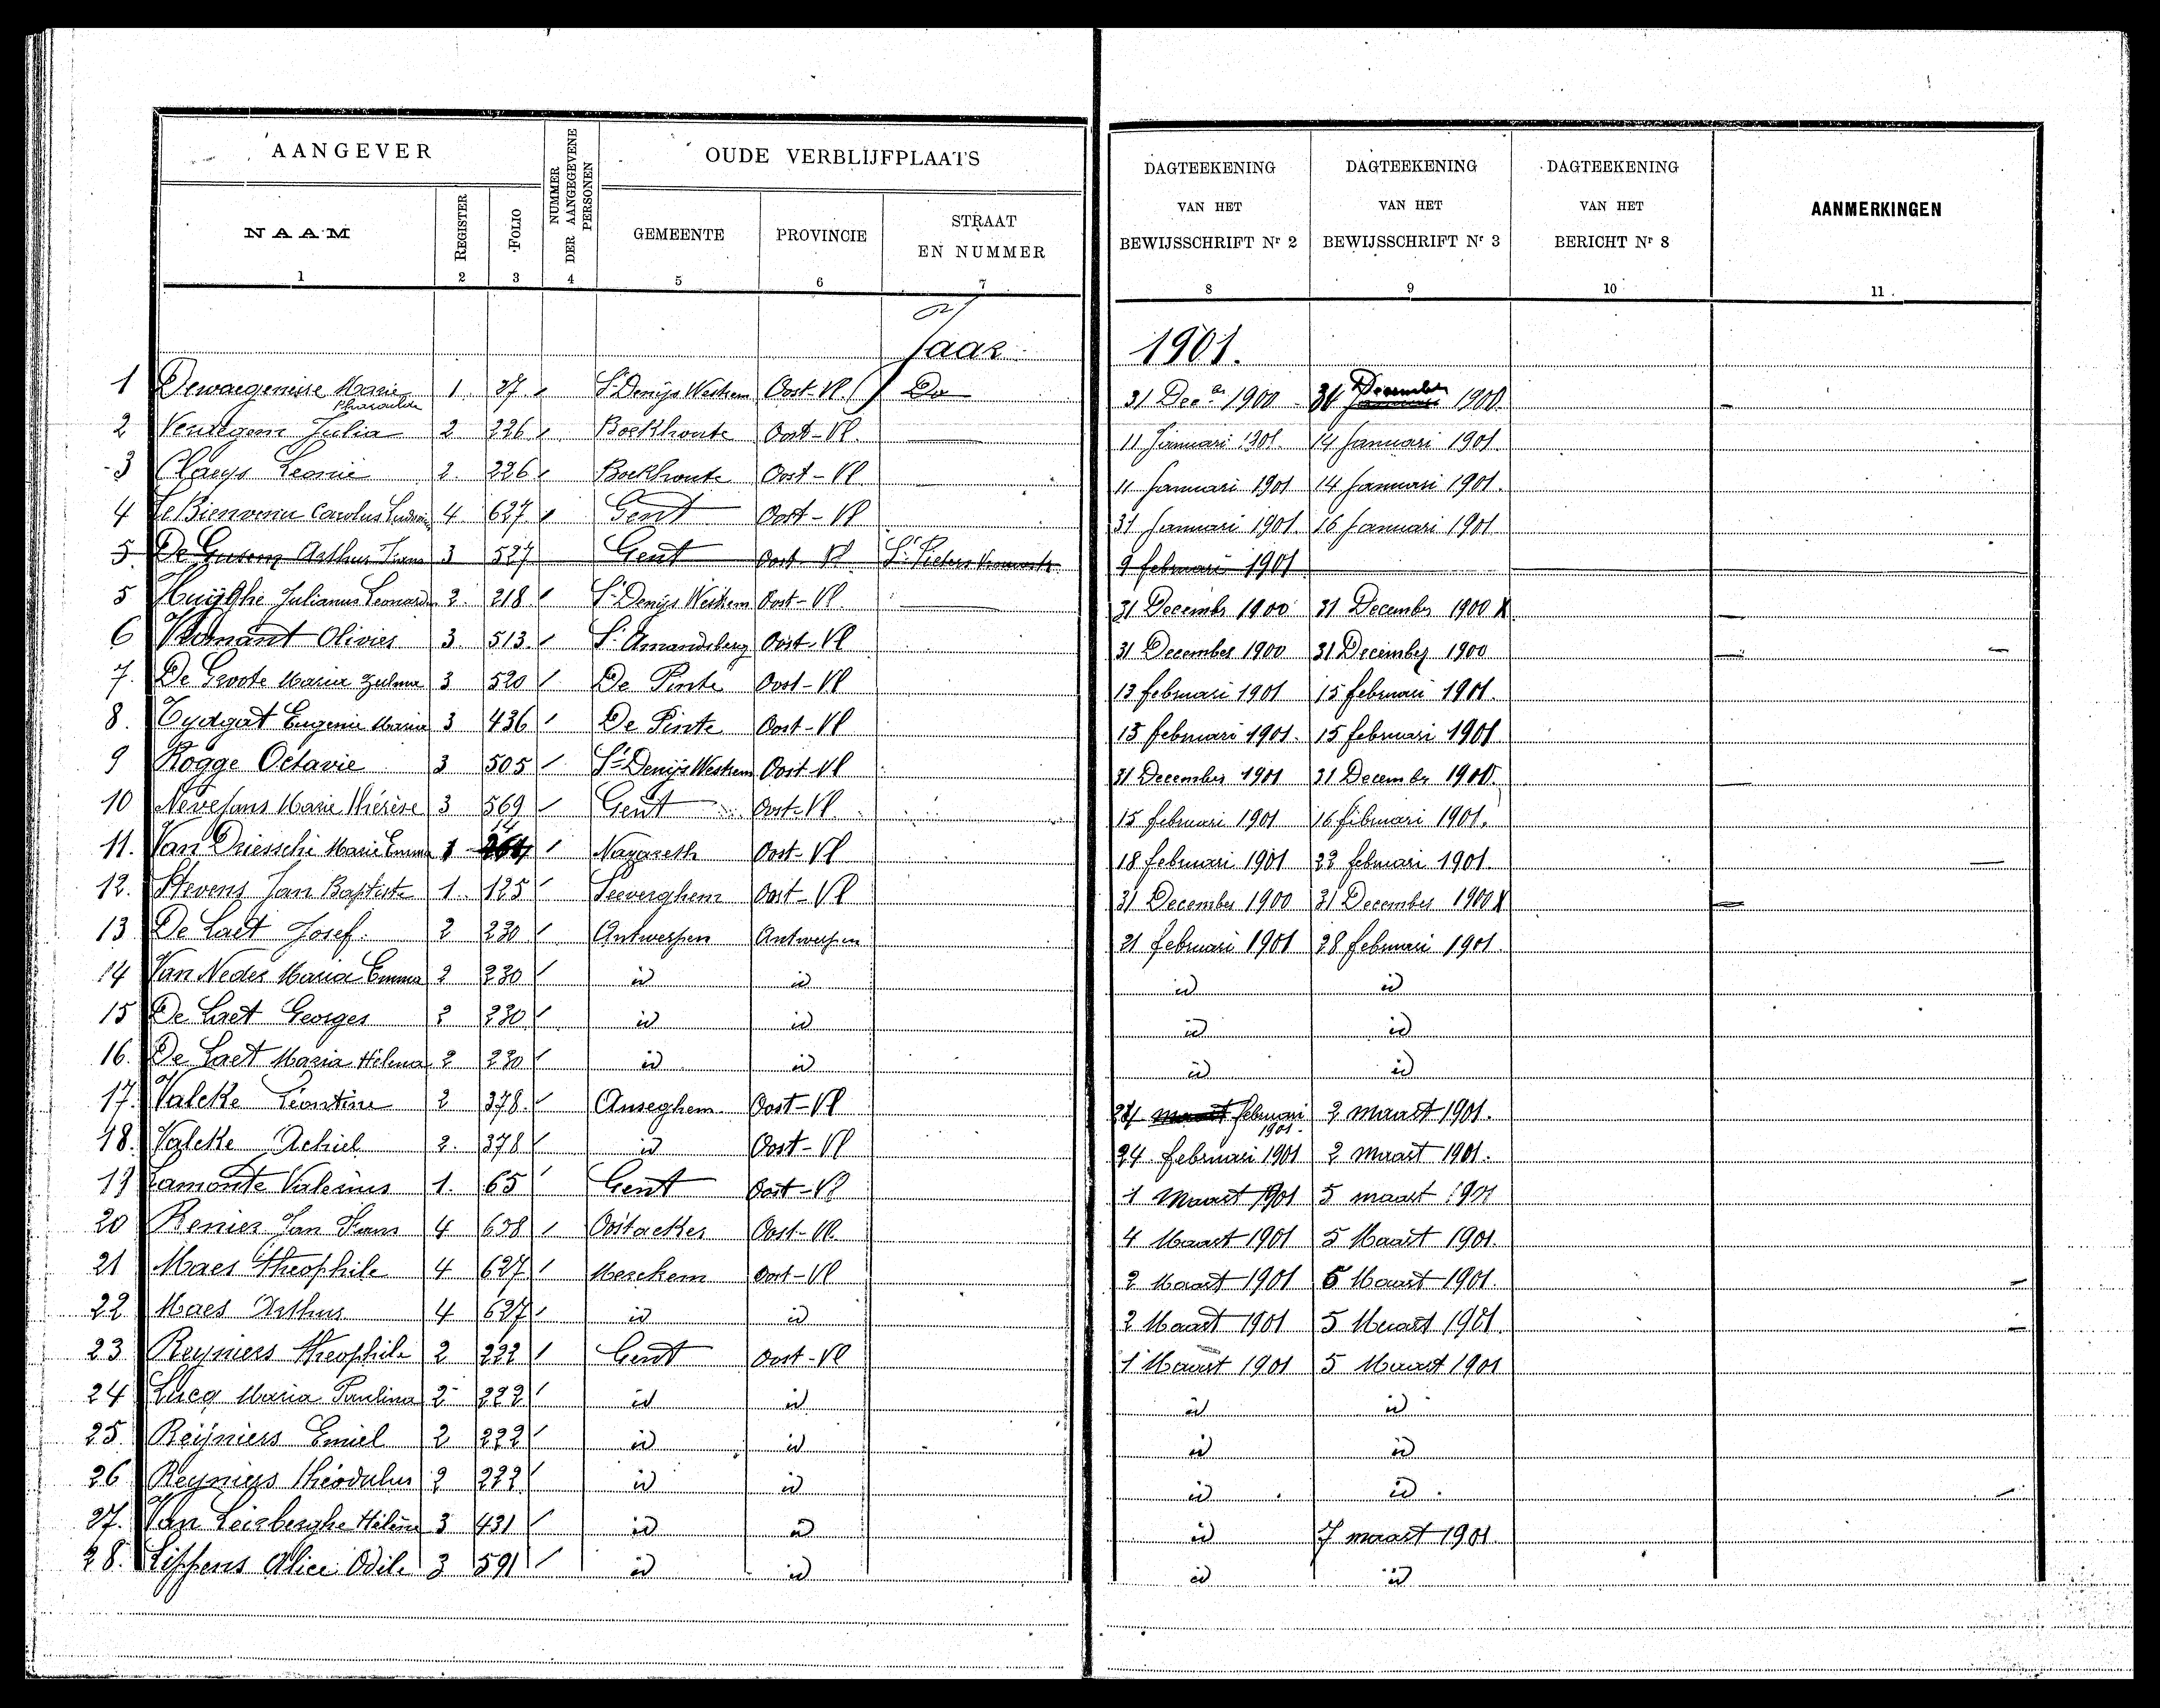 AANGEVER
NUMMER DER AANGEGEVENE PERSONEN
OUDE VERBLIJFPLAATS
DAGTEEKENING VAN HET BEWIJSSCHRIFT Nr 2
DAGTEEKENING VAN HET BEWIJSSCHRIFT Nr 3
DAGTEEKENING VAN HET BERICHT Nr 8
AANMERKINGEN
NAAM REGISTER FOLIO GEMEENTE PROVINCIE STRAAT EN NUMMER
1 2 3 4 5 6 7 8 9 10 11
Jaar 1901.
1 Marie 1. 37 St Denijs Westrem Oost-Vl. 31 Decr 1900 31 December 1900
2 Julia 2 226 Boekhoute Oost-Vl. 11 Januari 1901. 14 Januari 1901.
3 Claeys Leonie 2. 226 Boekhoute Oost-Vl. 11 Januari 1901 14 Januari 1901.
4 Le Bienvenu Carolus 4 627 Gent Oost-Vl 31 Januari 1901. 16 Januari 1901
5. De Arthur Frans 3 527 Gent Oost-Vl St Pieters 9 februari 1901
5 Huijghe Julianus Leonard 2. 218 St Denijs Westrem Oost-Vl. 31 Decembr 1900 31 December 1900 X
6 Olivier 3 513. St Amandsberg Oost-Vl 31 December 1900 31 December 1900
7. De Groote Maria Zulma 3 520 De Pinte Oost-Vl 13 februari 1901 15 februari 1901.
8. Tydgat Eugenie Maria 3 436 De Pinte Oost-Vl 13 februari 1901. 15 februari 1901
9 Rogge Octavie 3 505 St Denijs Westrem Oost-Vl 31 December 1901 31 December 1900.
10 Nevejans Marie Thérèse 3 569 Gent Oost-Vl. 15 februari 1901 16 februari 1901.
11. Van Driessche Marie Emma 1 14 Nazareth Oost-Vl 18 februari 1901 23 februari 1901.
12. Stevens Jan Baptiste 1. 125 Seeverghem Oost-Vl 31 December 1900 31 December 1900 X
13 De Laet Josef. 2 230 Antwerpen Antwerpen 21 februari 1901 28 februari 1901.
14 Van Neder Maria Emma 2 230 id id id id
15 De Laet Georges 2 230 id id id id
16. De Laet Maria Hélena 2 230 id id id id
17. Valcke Léontine 2 378. Anseghem Oost-Vl 24 maart februari 1901. 2 maart 1901.
18. Valcke Achiel 2. 378 id Oost-Vl 24 februari 1901 2 maart 1901.
19 Lamonte Valerius 1. 65 Gent Oost-Vl 1 Maart 1901 5 maart 1901
20 Renier Jan Frans 4 638 Oostacker Oost-Vl. 4 Maart 1901 5 Maart 1901.
21 Maes Théophile 4 627 Merckem Oost-Vl 2 Maart 1901 5 Maart 1901.
22 Maes Arthur 4 627 id id 2 Maart 1901 5 Maart 1901.
23 Reyniers Théophile 2 222 Gent Oost-Vl 1 Maart 1901 5 Maart 1901
24 Lucq Maria Paulina 2 222 id id id id
25 Reijniers Emiel 2 222 id id id id
26 Reyniers Théodulus 2 222 id id id id.
27. Van Leirberghe Hélène 3 431 id id id 7 maart 1901
28. Lippens Alice Odile 3 591 id id id id